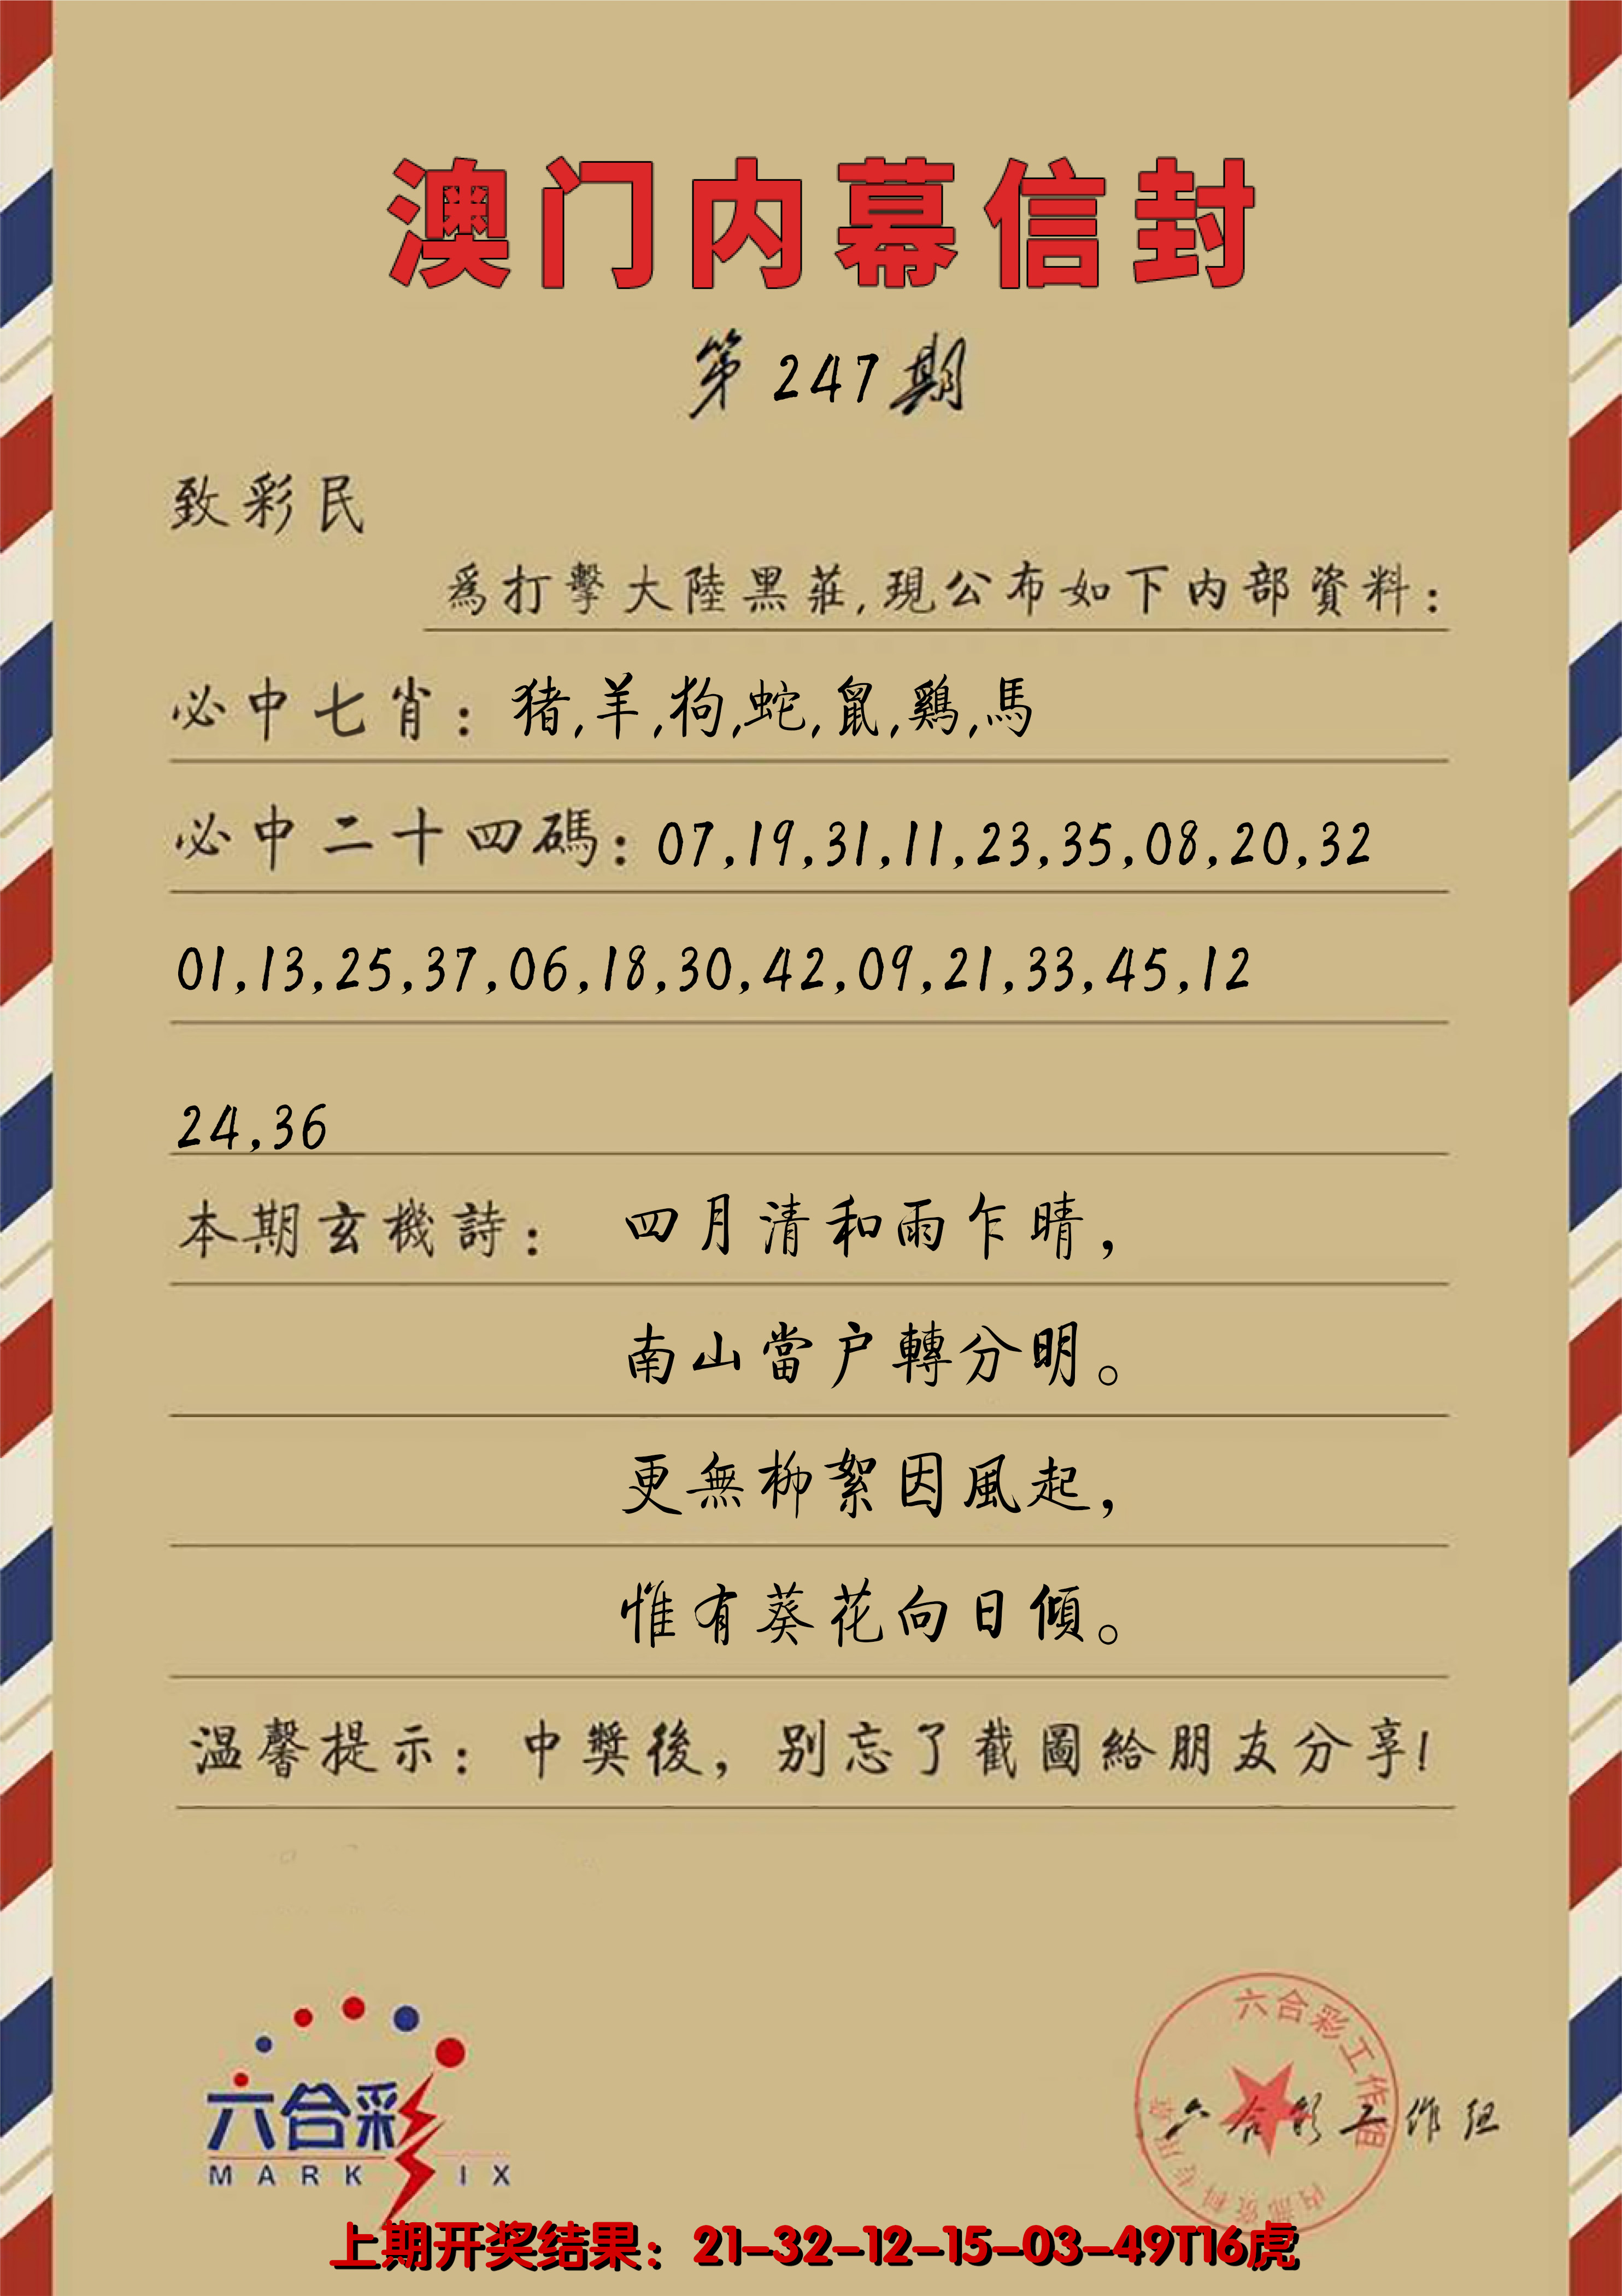 澳门内幕信封
第247期
致彩民
為打擊大陸黑莊,現公布如下内部資料:
必中七肖:猪,羊,狗,蛇,鼠,鷄,馬
必中二十四碼:07,19,31,11,23,35,08,20,32
01,13,25,37,06,18,30,42,09,21,33,45,12
24,36
本期玄機詩: 四月清和雨乍晴,
南山當户轉分明。
更無柳絮因風起,
惟有葵花向日傾。
温馨提示: 中獎後, 别忘了截圖給朋友分享!
六合彩
MARK IX
六合彩工作组
内部资料专用章
六合彩工作组
上期开奖结果:21-32-12-15-03-49T16虎